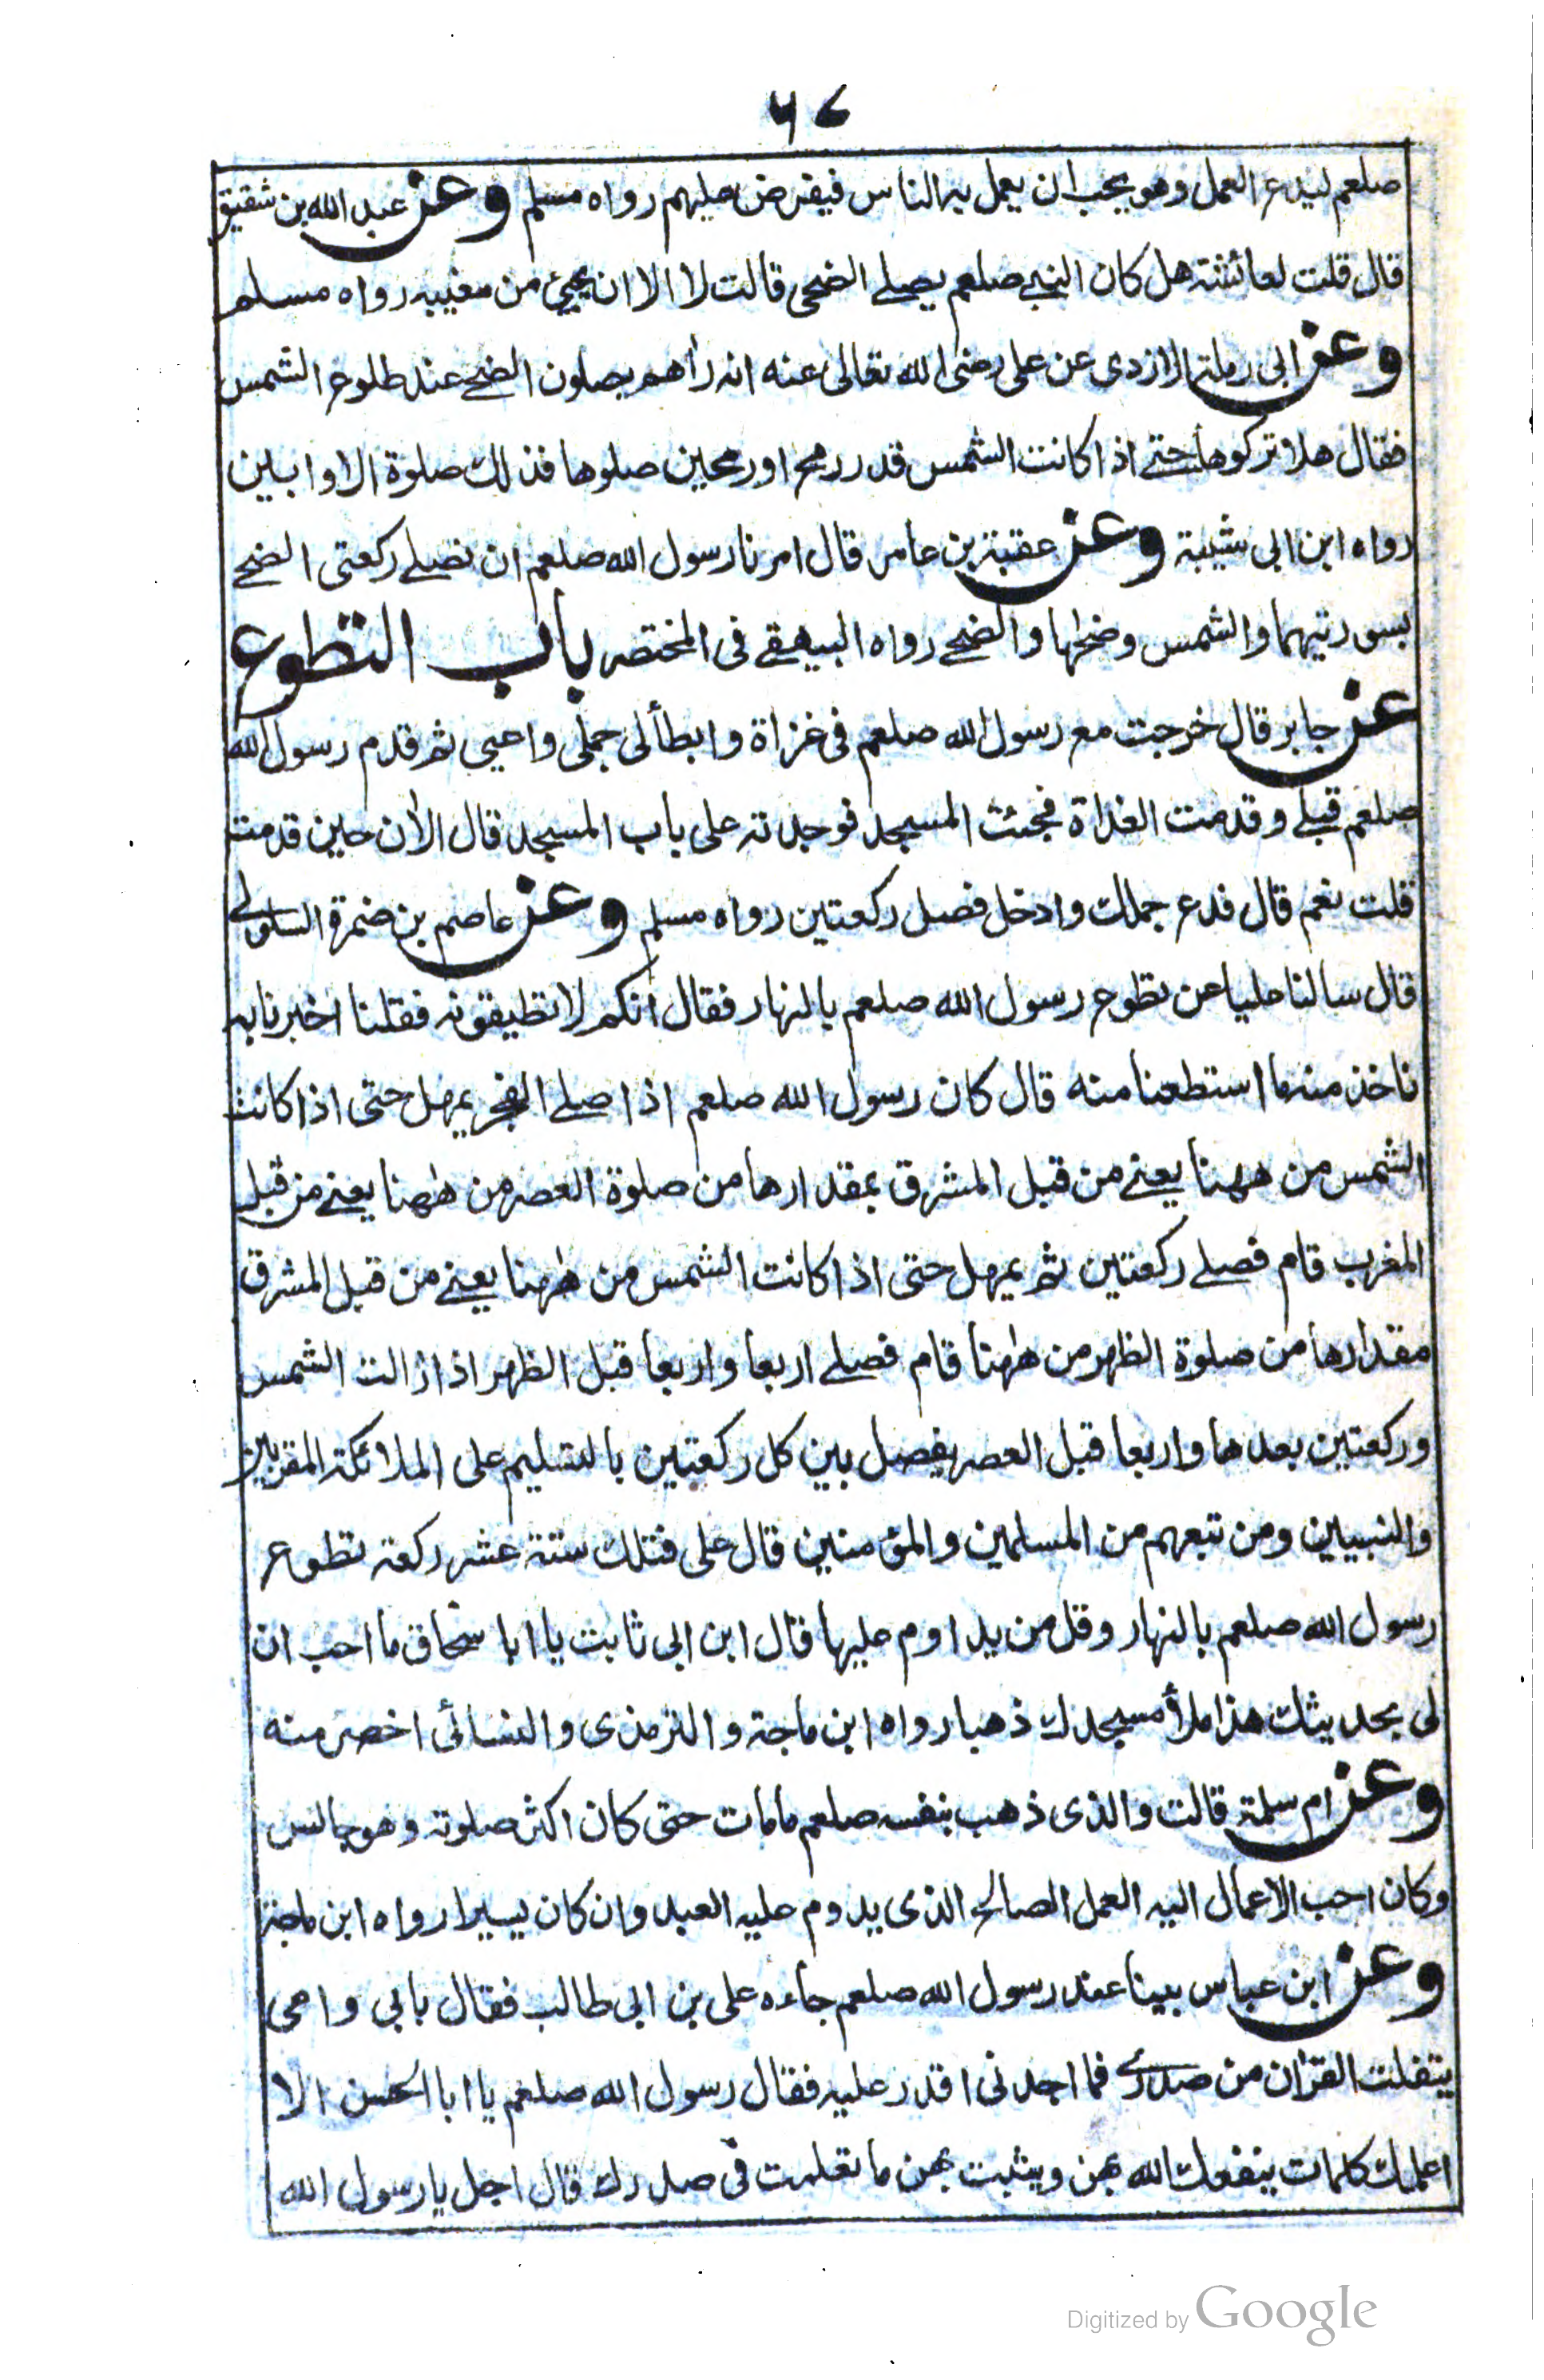 ٦٧
صلعم ليدع العمل وهو يحب ان يعمل به الناس فيفرض عليهم رواه مسلم وعن عبد الله بن شقيق
قال قلت لعائشة هل كان النبي صلعم يصلے الضحى قالت لا الا ان يجيئ من مغيبه رواه مسلم
وعن ابى رملة الازدى عن على رضى الله تعالى عنه انه رأهم يصلون الضحے عند طلوع الشمس
فقال هلا تركوها حتے اذا كانت الشمس قدر رمح او رمحين صلوها فذلك صلوة الاوابين
رواه ابن ابى شيبة وعن عقبة بن عامر قال امرنا رسول الله صلعم ان نصلے ركعتى الضحے
بسورتيهما والشمس وضحها والضحے رواه البيهقے فى المختصر باب التطوع
عن جابر قال خرجت مع رسول الله صلعم فى غزاة وابطأ لى جملى واعيى ثم قدم رسول الله
صلعم قبلے وقدمت الغداة فجئت المسجد فوجدته على باب المسجد قال الأن حين قدمت
قلت نعم قال فدع جملك وادخل فصل ركعتين رواه مسلم وعن عاصم بن ضمرة السلولے
قال سالنا عليا عن تطوع رسول الله صلعم بالنهار فقال انكم لا تطيقونه فقلنا اخبرنا به
ناخذ منه ما استطعنا منه قال كان رسول الله صلعم اذا صلے الفجر يمهل حتى اذا كانت
الشمس من ههنا يعنے من قبل المشرق بمقدارها من صلوة العصر من ههنا يعنے من قبل
المغرب قام فصلے ركعتين ثم يمهل حتى اذا كانت الشمس من ههنا يعنے من قبل المشرق
مقدارها من صلوة الظهر من ههنا قام فصلے اربعا واربعا قبل الظهر اذا زالت الشمس
وركعتين بعدها واربعا قبل العصر يفصل بين كل ركعتين بالتسليم على الملائكة المقربين
والنبيين ومن تبعهم من المسلمين والمؤمنين قال على فتلك ستة عشر ركعة تطوع
رسول الله صلعم بالنهار وقل من يداوم عليها قال ابن ابى ثابت يا ابا سحاق ما احب ان
لى بحديثك هذا ملأ مسجدك ذهبا رواه ابن ماجة والترمذى والنسائى اخصر منه
وعن ام سلمة قالت والذى ذهب بنفسه صلعم ما مات حتى كان اكثر صلوته وهو جالس
وكان احب الاعمال اليه العمل الصالح الذى يدوم عليه العبد وان كان يسيرا رواه ابن ماجة
وعن ابن عباس بينا عند رسول الله صلعم جاءه على بن ابى طالب فقال بابى وامى
يتفلت القرأن من صدرى فما اجدنى اقدر عليه فقال رسول الله صلعم يا ابا الحسن الا
اعلمك كلمات ينفعك الله بهن ويثبت بهن ما تعلمت فى صدرك قال اجل يا رسول الله
Digitized by Google